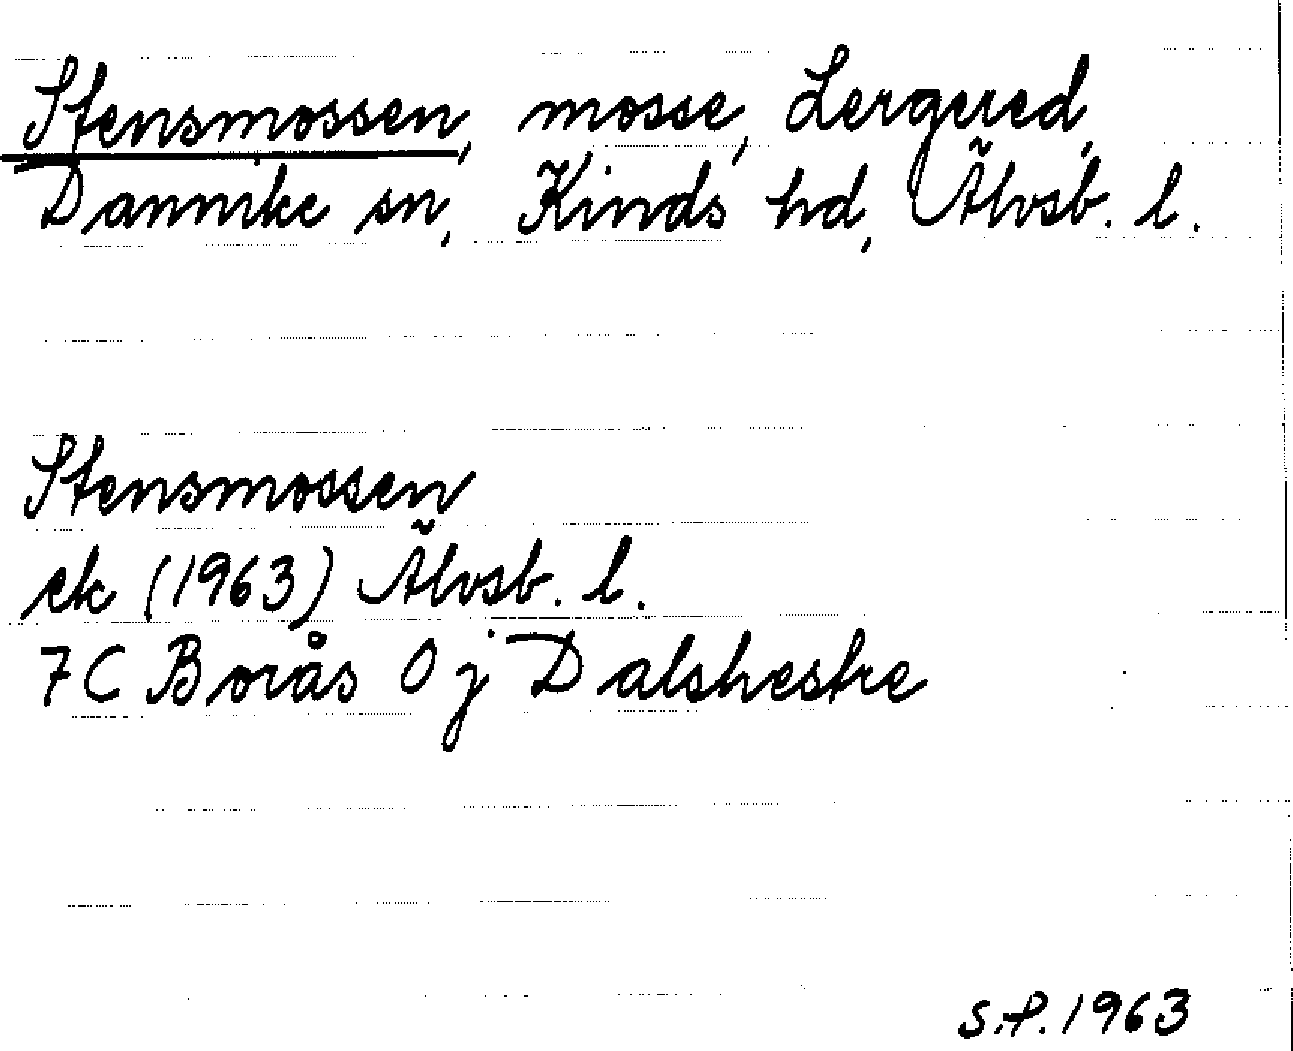 Stensmossen, mosse, Lergered,
Dannike sn, Kinds hd, Älvsb. l.
Stensmossen
ek (1963) Älvsb. l.
7C Borås 0j Dalshestre
S.P. 1963